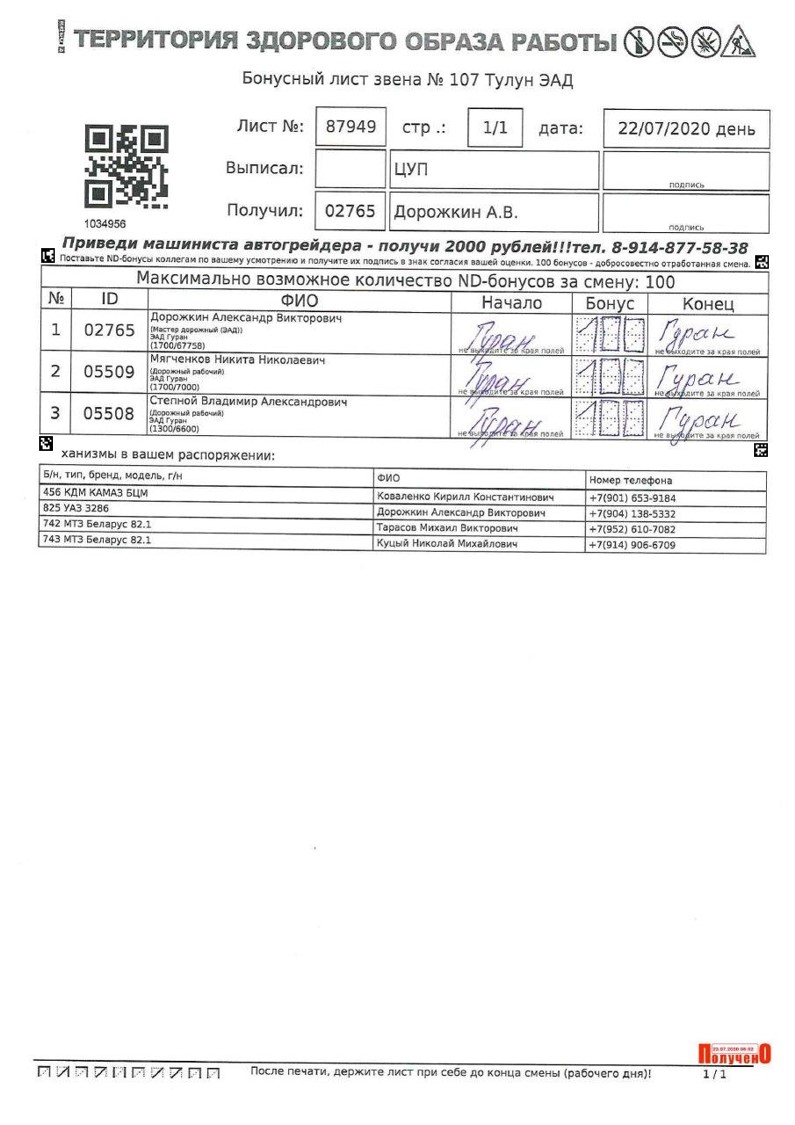 ТЕРРИТОРИЯ ЗДОРОВОГО ОБРАЗА РАБОТЫ
Бонусный лист звена № 107 Тулун ЭАД
Лист №: 87949 стр .: 1/1 дата: 22/07/2020 день
Выписал: ЦУП
подпись
Получил: 02765 Дорожкин А.В.
подпись
1034956
Приведи машиниста автогрейдера - получи 2000 рублей!!!тел. 8-914-877-58-38
Поставьте ND-бонусы коллегам по вашему усмотрению и получите их подпись в знак согласия вашей оценки. 100 бонусов - добросовестно отработанная смена.
Максимально возможное количество ND-бонусов за смену: 100
№ ID ФИО Начало Бонус Конец
1 02765 Дорожкин Александр Викторович Гуран 100 Гуран
(Мастер дорожный (ЭАД))
ЭАД Гуран
(1700/67758) не выходите за края полей не выходите за края полей
2 05509 Мягченков Никита Николаевич Гуран 100 Гуран
(Дорожный рабочий)
ЭАД Гуран
(1700/7000) не выходите за края полей не выходите за края полей
3 05508 Степной Владимир Александрович Гуран 100 Гуран
(Дорожный рабочий)
ЭАД Гуран
(1300/6600) не выходите за края полей не выходите за края полей
ханизмы в вашем распоряжении:
Б/н, тип, бренд, модель, г/н ФИО Номер телефона
456 КДМ КАМАЗ БЦМ Коваленко Кирилл Константинович +7(901) 653-9184
825 УАЗ 3286 Дорожкин Александр Викторович +7(904) 138-5332
742 МТЗ Беларус 82.1 Тарасов Михаил Викторович +7(952) 610-7082
743 МТЗ Беларус 82.1 Куцый Николай Михайлович +7(914) 906-6709
ПолученО
После печати, держите лист при себе до конца смены (рабочего дня)! 1 / 1